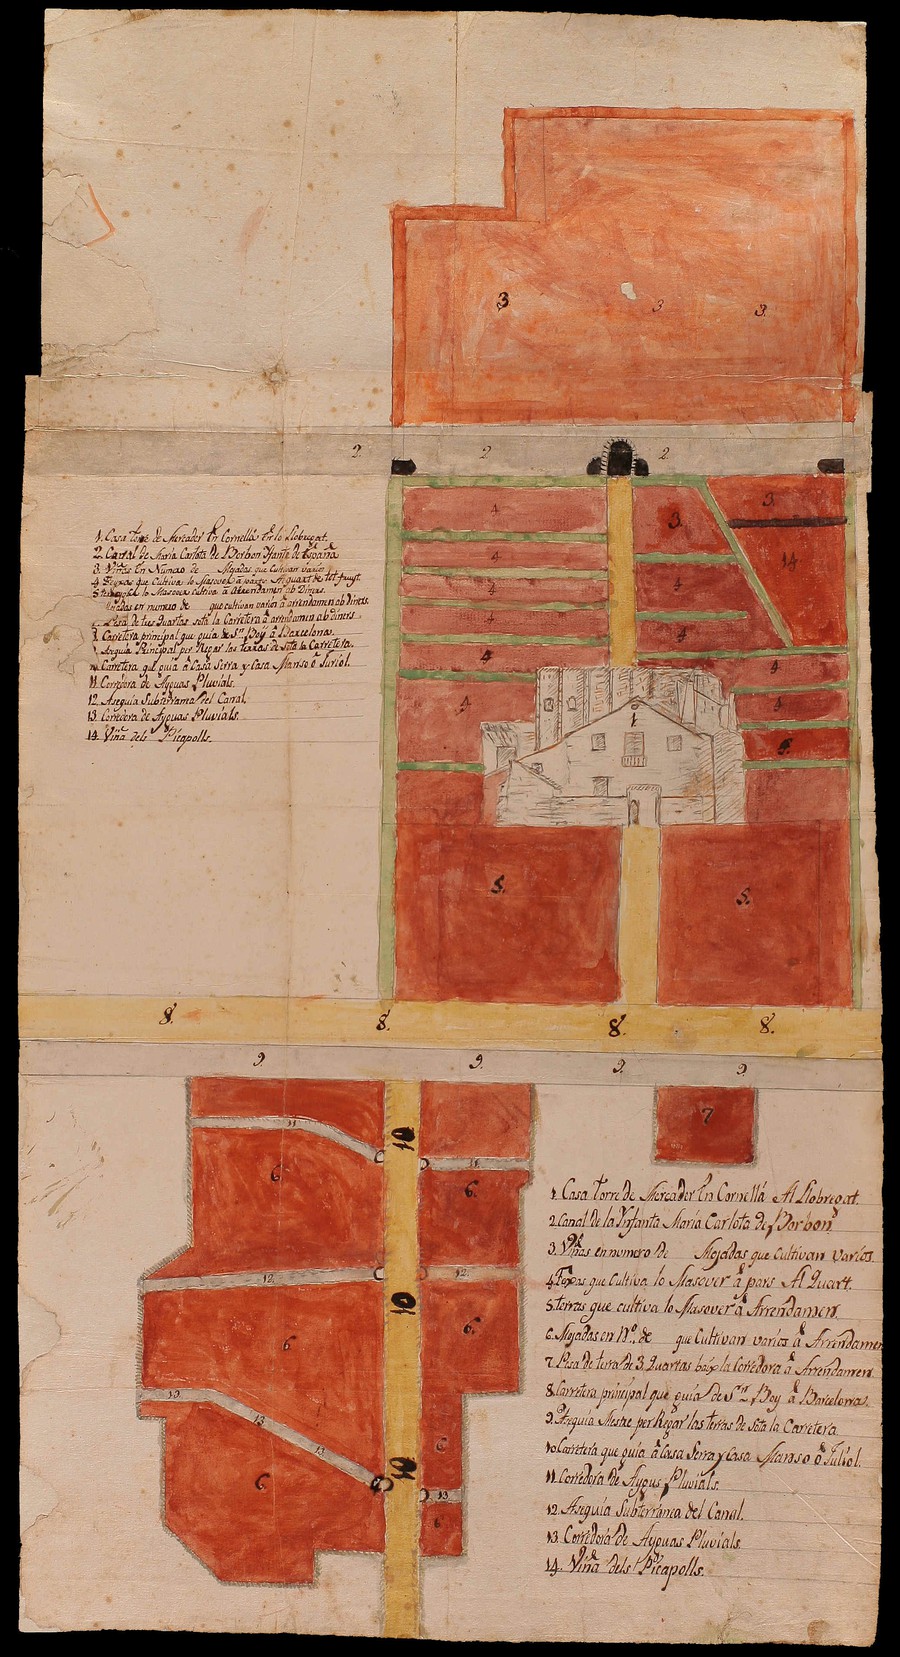 3 3 3.
2 2 2
1. Casa torre de Mercader En Cornellá En lo Llobregat.
2. Canal de María Carlota de Borbon Ifanta de España
3. Viñas En Numero de Mojadas que Cultivan varios
4 que Cultiva lo Masover á parts Al quart de tot fruyt
5 lo Masover cultiva á Arrendament ab Diners.
Mojadas en numero de que cultivan varios á arrendament ab diners.
Pesa de tres Quartas sota la Carretera á arrendamen ab diners
8 Carretera principal que guia de Sn. Boy á Barcelona.
Aseguia Principal per Regar las terras de sota la Carretera.
10 Carretera que guia á Casa Serra y Casa Manso ó Juriol.
11 Corredora de Ayguas Pluvials.
12. Aseguia Subterranea del Canal.
13. Corredora de Ayguas Pluvials.
14 Viña dels Picapolls.
4 3 3
4 14
4 4
4 4
4 4
4 4
1
4
5. 5.
8. 8. 8. 8.
9. 9. 9. 9.
11 10 11 7
6 6.
12. 12.
10
6 6.
13 13 13
10 6
13
6. 6
1. Casa torre de Mercader En Cornellá Al Llobregat.
2. Canal de la Ynfanta María Carlota de Borbon
3. Viñas en numero de Mojadas que Cultivan varios
4. que Cultiva lo Masover á pars Al Quart.
5. terras que cultiva lo Masover á Arrendamen.
6. Mojadas en No. de que Cultivan varios á Arrendamen
7. Pesa de terra de 3 Quartas baix la Corredora á Arrendamen.
8. Carretera principal que guia de Sn. Boy á Barcelona.
9. Aseguia Mestre per Regar las terras de sota la Carretera.
10. Carretera que guia á Casa Serra y Casa Manso ó Juliol.
11. Corredora de Ayguas Pluvials.
12. Aseguia Subterranea del Canal.
13. Corredora de Ayguas Pluvials.
14. Viña dels Picapolls.